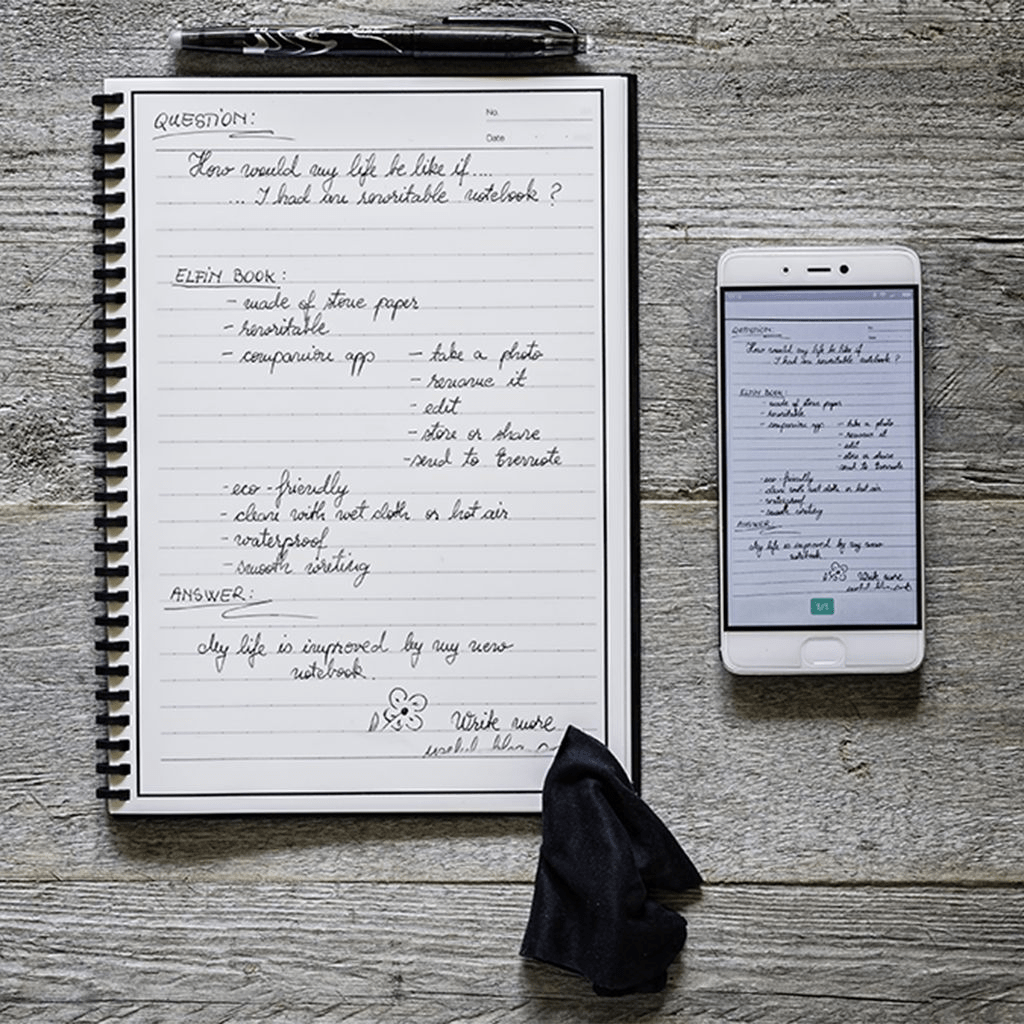 QUESTION:
No.
Date
How would my life be like if....
... I had an rewritable notebook ?
ELFIN BOOK:
- made of stone paper
- rewritable
- companion app - take a photo
- rename it
- edit
- store or share
- send to Evernote
- eco-friendly
- clean with wet cloth or hot air
- waterproof
- smooth writing
ANSWER:
My life is improved by my new
notebook.
Write more
useful
QUESTION:
No.
Date
How would my life be like if
I had an rewritable notebook ?
ELFIN BOOK:
- made of stone paper
- rewritable
- companion app - take a photo
- rename it
- edit
- store or share
- send to Evernote
- eco-friendly
- clean with wet cloth or hot air
- waterproof
- smooth writing
ANSWER:
My life is improved by my new
notebook
Write more
useful
1/1